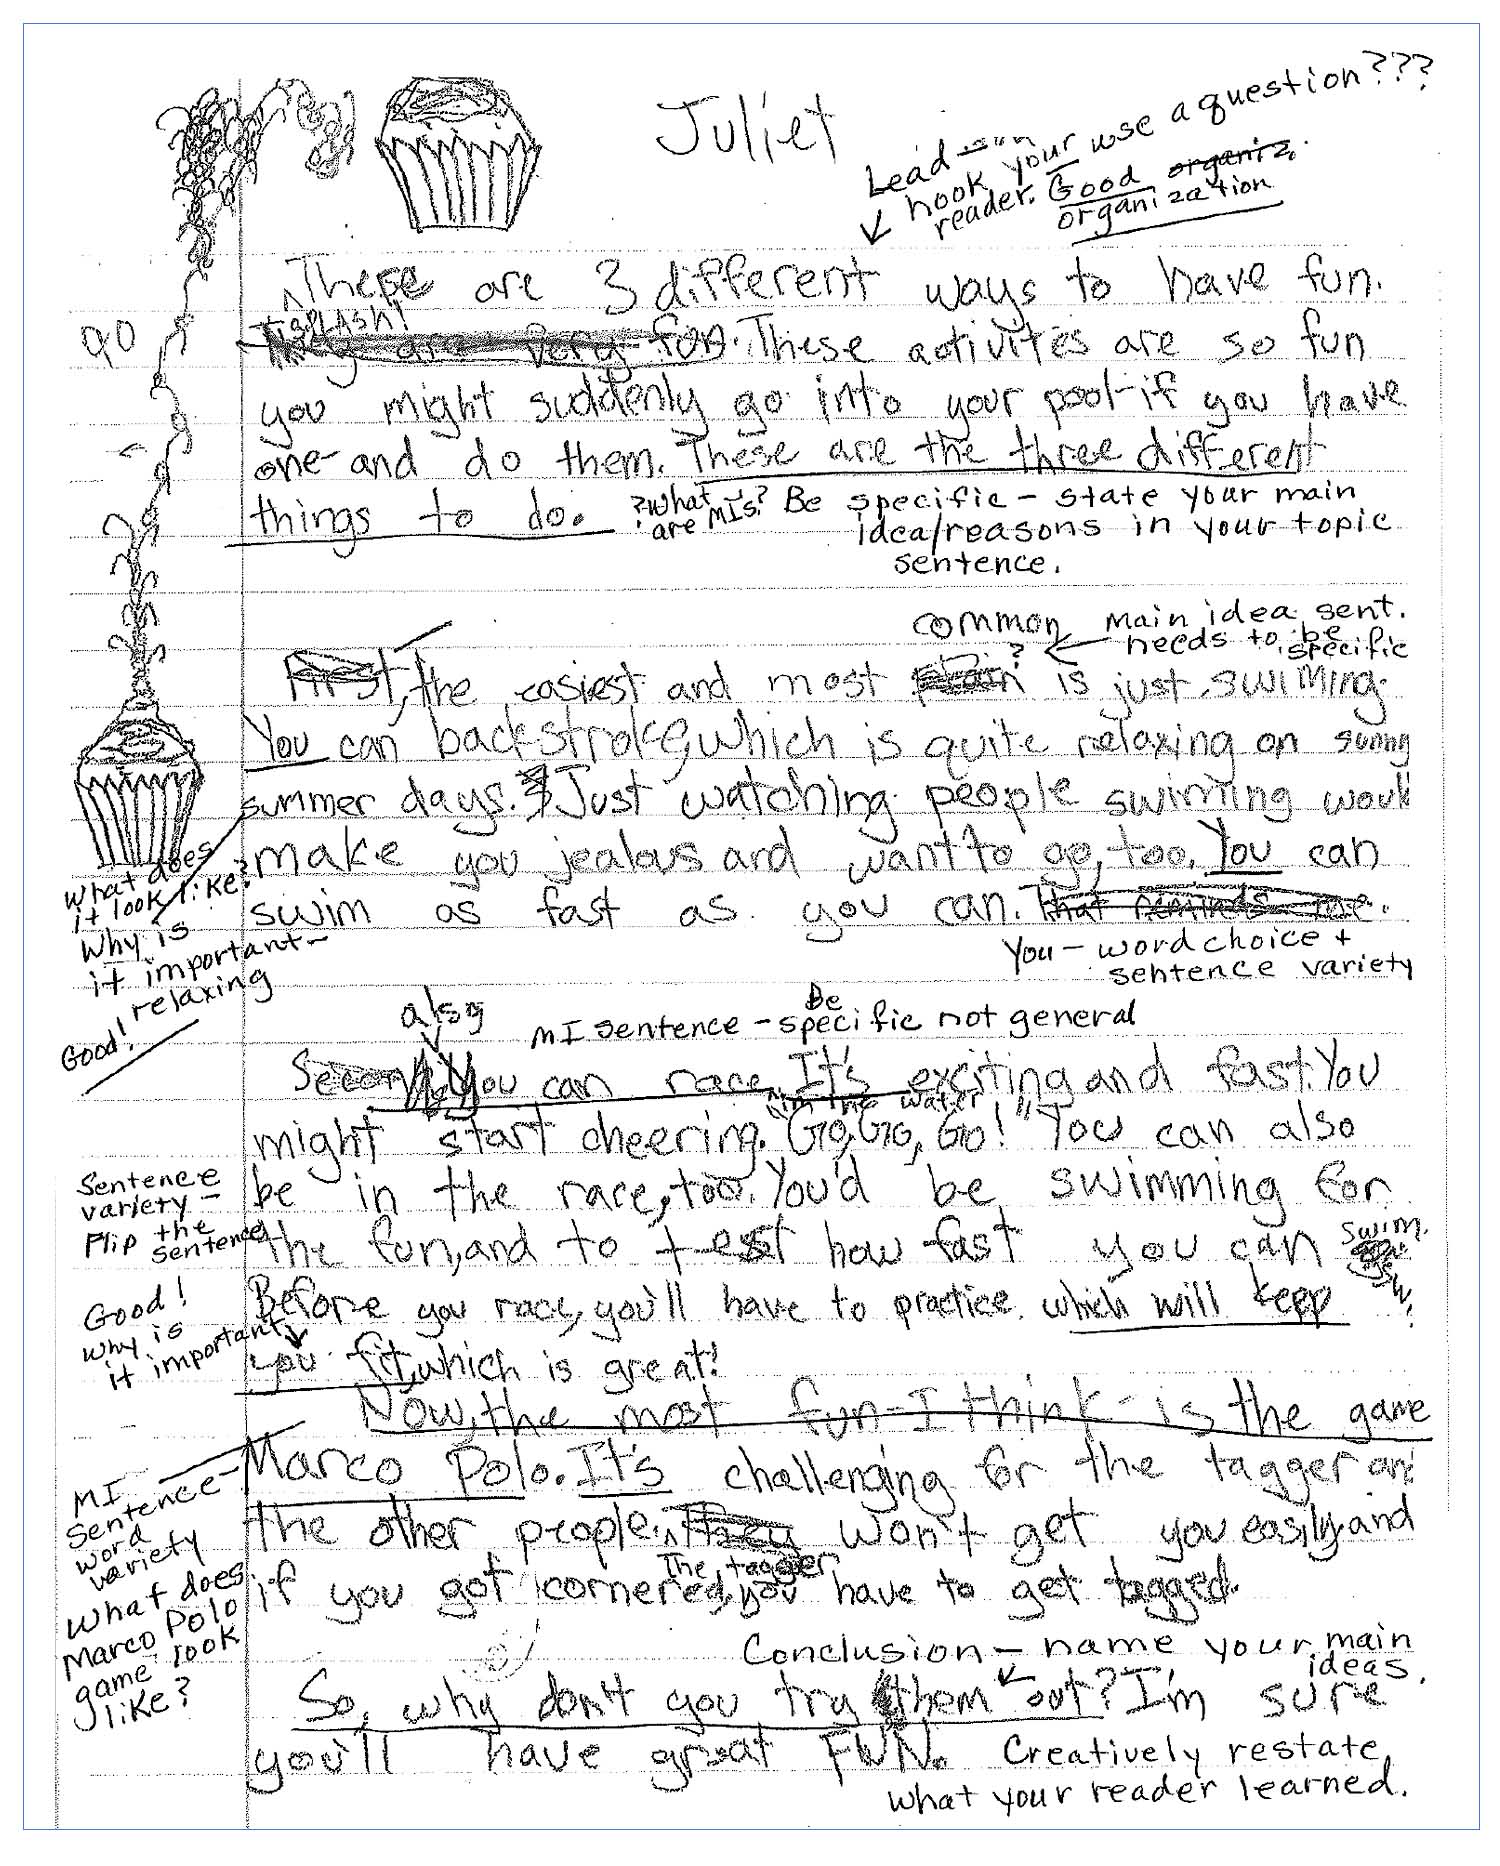 Juliet
Lead
hook your use a question???
reader. Good organiz.
organization
These are 3 different ways to have fun.
SPLASH!
90
They are very fun. These activites are so fun
you might suddenly go into your pool-if you have
one-and do them. These are the three different
things to do. ?What are MIs? Be specific - state your main
idea/reasons in your topic
sentence.
common Main idea sent.
? needs to be
specific
First, the easiest and most plain is just swiming.
You can backstroke, which is quite relaxing on sunny
summer days. Just watching people swimming would
make you jealous and want to go, too. You can
What does
it look like?
swim as fast as you can. That reminds me.
Why is
it important-
relaxing
Good!
You - word choice +
sentence variety
also
MI sentence - Be specific not general
Second, You can race. It's exciting and fast. You
in the water
might start cheering. "Go, Go, Go!" You can also
be in the race, too. You'd be swimming for
Sentence
variety -
Flip the
sentence
the fun, and to test how fast you can swim.
Before you race, you'll have to practice which will kepp
Good!
Why is
it important
you fit, which is great!
Now, the most fun-I think-is the game
Marco Polo. It's challenging for the tagger and
MI
sentence-
word
variety
the other people. They won't get you easily and
The tagger
if you got cornered, you have to get tagged.
What does
Marco Polo
game look
like?
Conclusion - name your main
ideas.
So, why don't you try them out? I'm sure
you'll have great FUN. Creatively restate
what your reader learned.